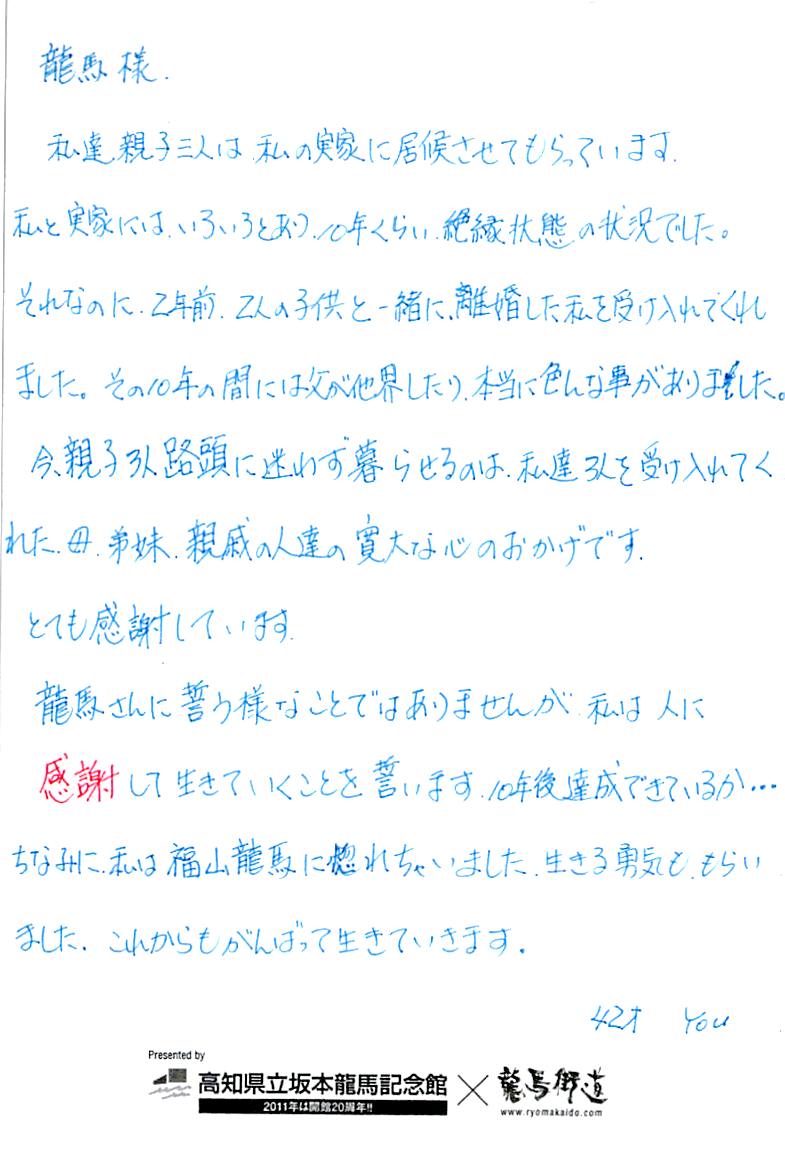 龍馬様.
私達親子三人は私の実家に居候させてもらっています.
私と実家には、いろいろとあり、10年くらい絶縁状態の状況でした。
それなのに、2年前、2人の子供と一緒に、離婚した私を受け入れてくれ
ました。その10年の間には父が他界したり、本当に色んな事がありました。
今、親子3人路頭に迷わず暮らせるのは、私達3人を受け入れてく
れた、母、弟妹、親戚の人達の寛大な心のおかげです.
とても感謝しています.
龍馬さんに誓う様なことではありませんが、私は人に
感謝して生きていくことを誓います.10年後達成できているか…
ちなみに、私は福山龍馬に惚れちゃいました.生きる勇気も、もらい
ました.これからもがんばって生きていきます.
42才 You
Presented by
高知県立坂本龍馬記念館 × 龍馬街道
2011年は開館20周年!! www.ryomakaido.com